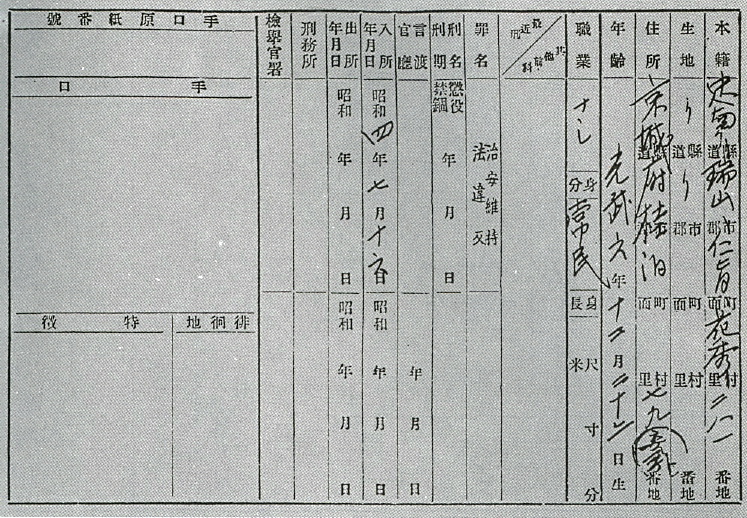 本籍 忠南 道縣 瑞山 郡市 仁旨 面町 花秀 里村 二八一 番地
生地 〃 道縣 〃 郡市 面町 里村 番地
住所 京城府桂洞 道縣 面町 里村 七九 番地
年齡 光武六年十二月二十 日生
職業 ナシ 身分 常民 身長 米尺 寸 分
最近刑 其他前科
罪名 治安維持法違反
刑名刑期 懲役禁錮 年 月 日
言渡官廳 年 月 日
入所年月日 昭和四年七月十六日 昭和 年 月 日
出所年月日 昭和 年 月 日 昭和 年 月 日
刑務所
檢擧官署
手口原紙番號
手口
徘徊地
特徴